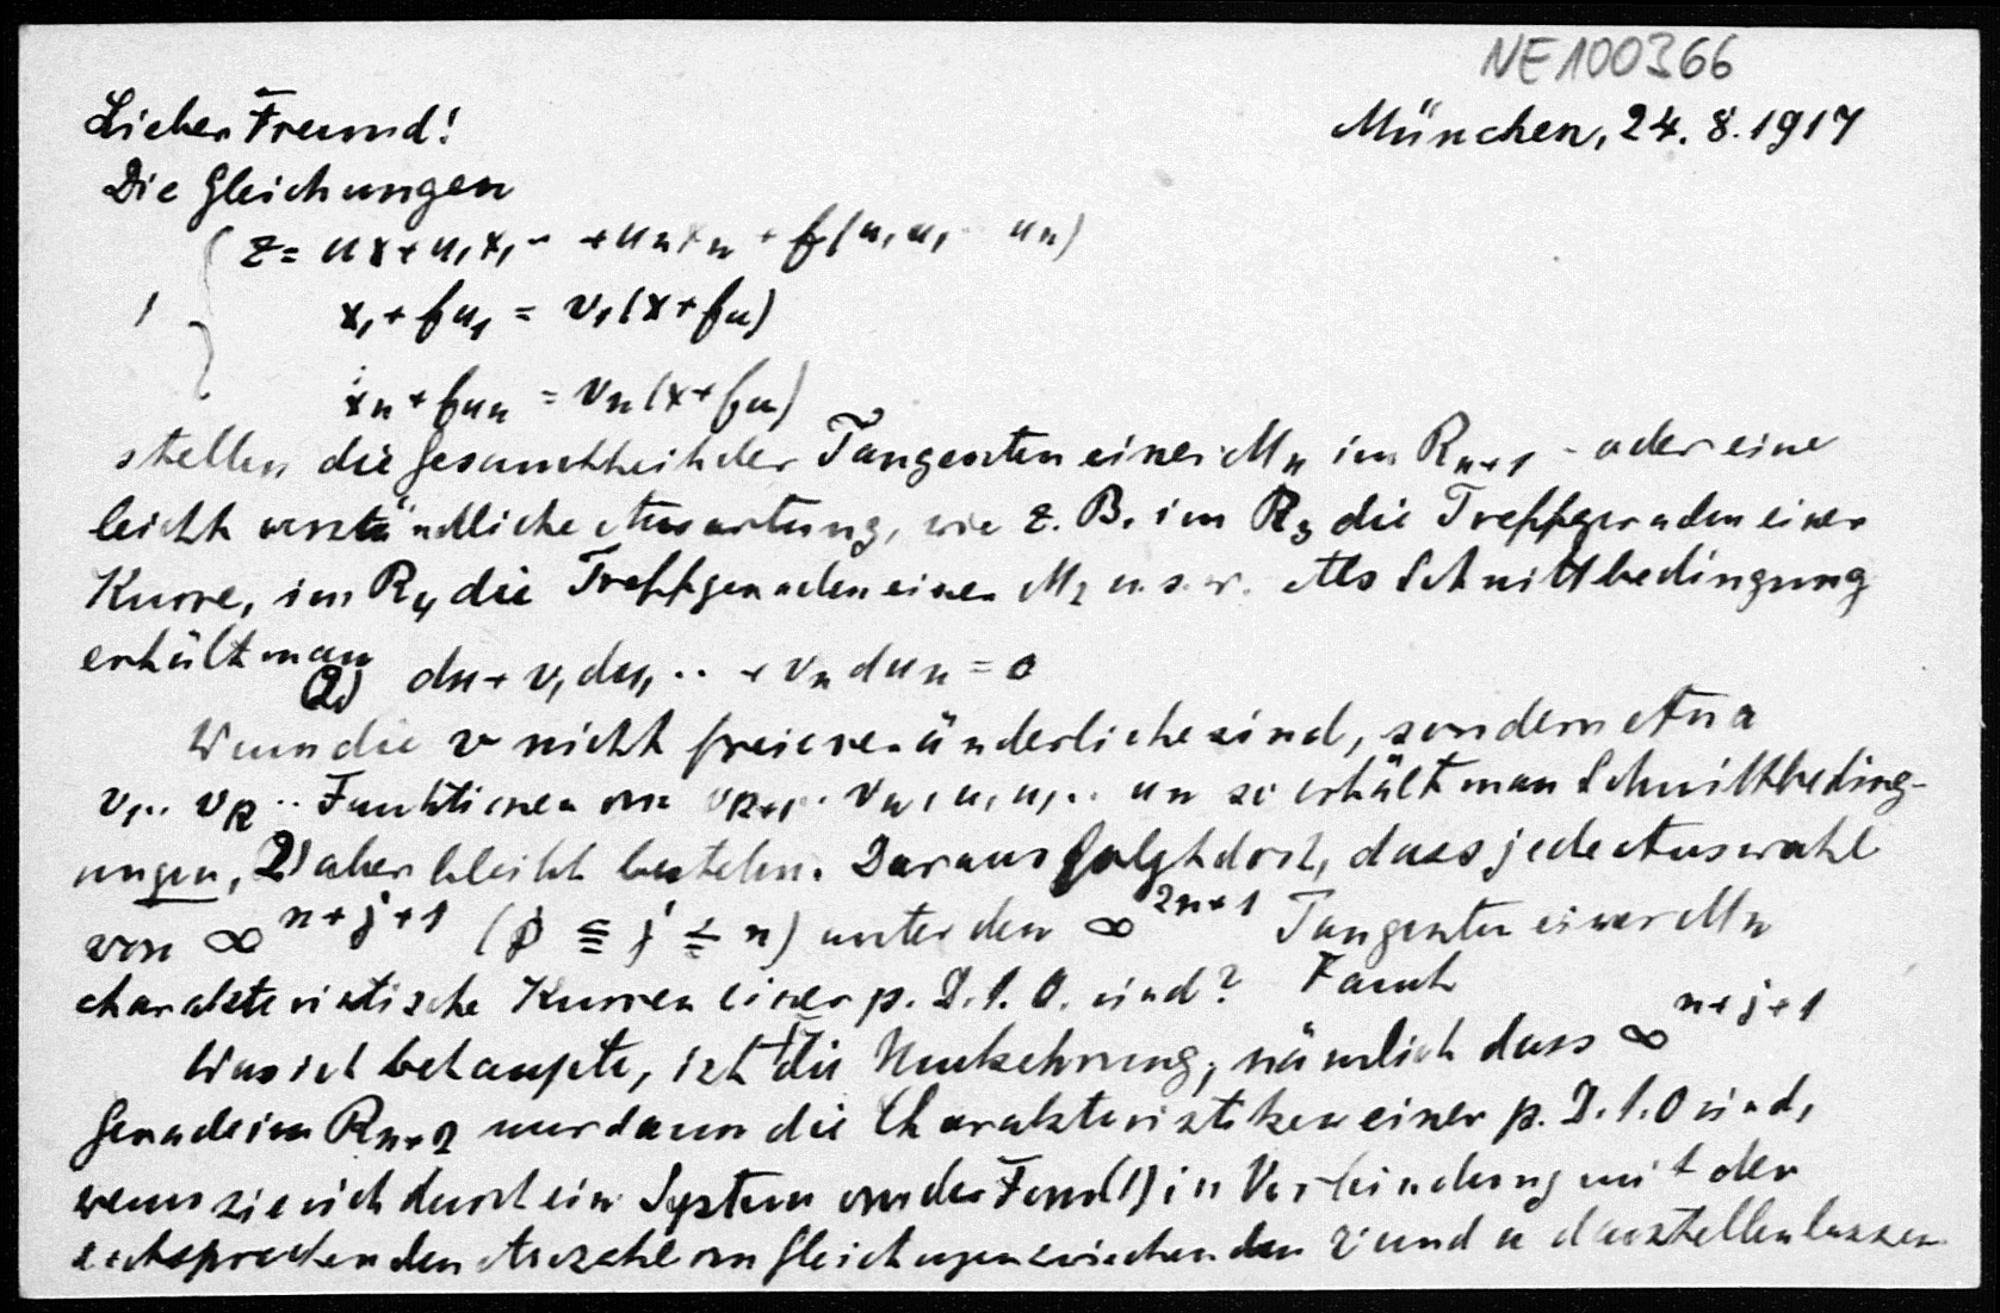 NE100366
Lieber Freund! München, 24. 8. 1917
Die Gleichungen
z = ux + u₁x₁ ·· + uₙxₙ + f(u, u₁ ·· uₙ)
1 x₁ + fu₁ = v₁(x + fu)
xₙ + fuₙ = vₙ(x + fu)
stellen die Gesamtheit der Tangenten einer Mₙ im Rₙ₊₁ - oder eine
leicht verständliche Ausartung, wie z. B. im R₃ die Treffgeraden einer
Kurve, im R₄ die Treffgeraden einer M₂ u. s. w. Als Schnittbedingung
erhält man
2) du + v₁du₁ ·· + vₙduₙ = 0
Wenn die v nicht freie veränderliche sind, sondern etwa
v₁ ·· vₖ ·· Funktionen von vₖ₊₁ ·· vₙ, u, u₁ ·· uₙ so erhält man Schnittbeding-
ungen, 2) aber bleibt bestehen. Daraus folgt doch, dass jede Auswahl
von ∞ⁿ⁺ʲ⁺¹ ( ≦ j ≦ n) unter den ∞²ⁿ⁺¹ Tangenten einer Mₙ
charakteristische Kurven einer p. D. 1. O. sind?
Was ich behaupte, ist die Umkehrung, nämlich dass ∞ⁿ⁺ʲ⁺¹
Gerade im Rₙ₊₂ nur dann die Charakteristiken einer p. D. 1. O sind,
wenn sie sich durch ein System von der Form (1) in Verbindung mit der
entsprechenden Anzahl von Gleichungen zwischen den v und u darstellen lassen